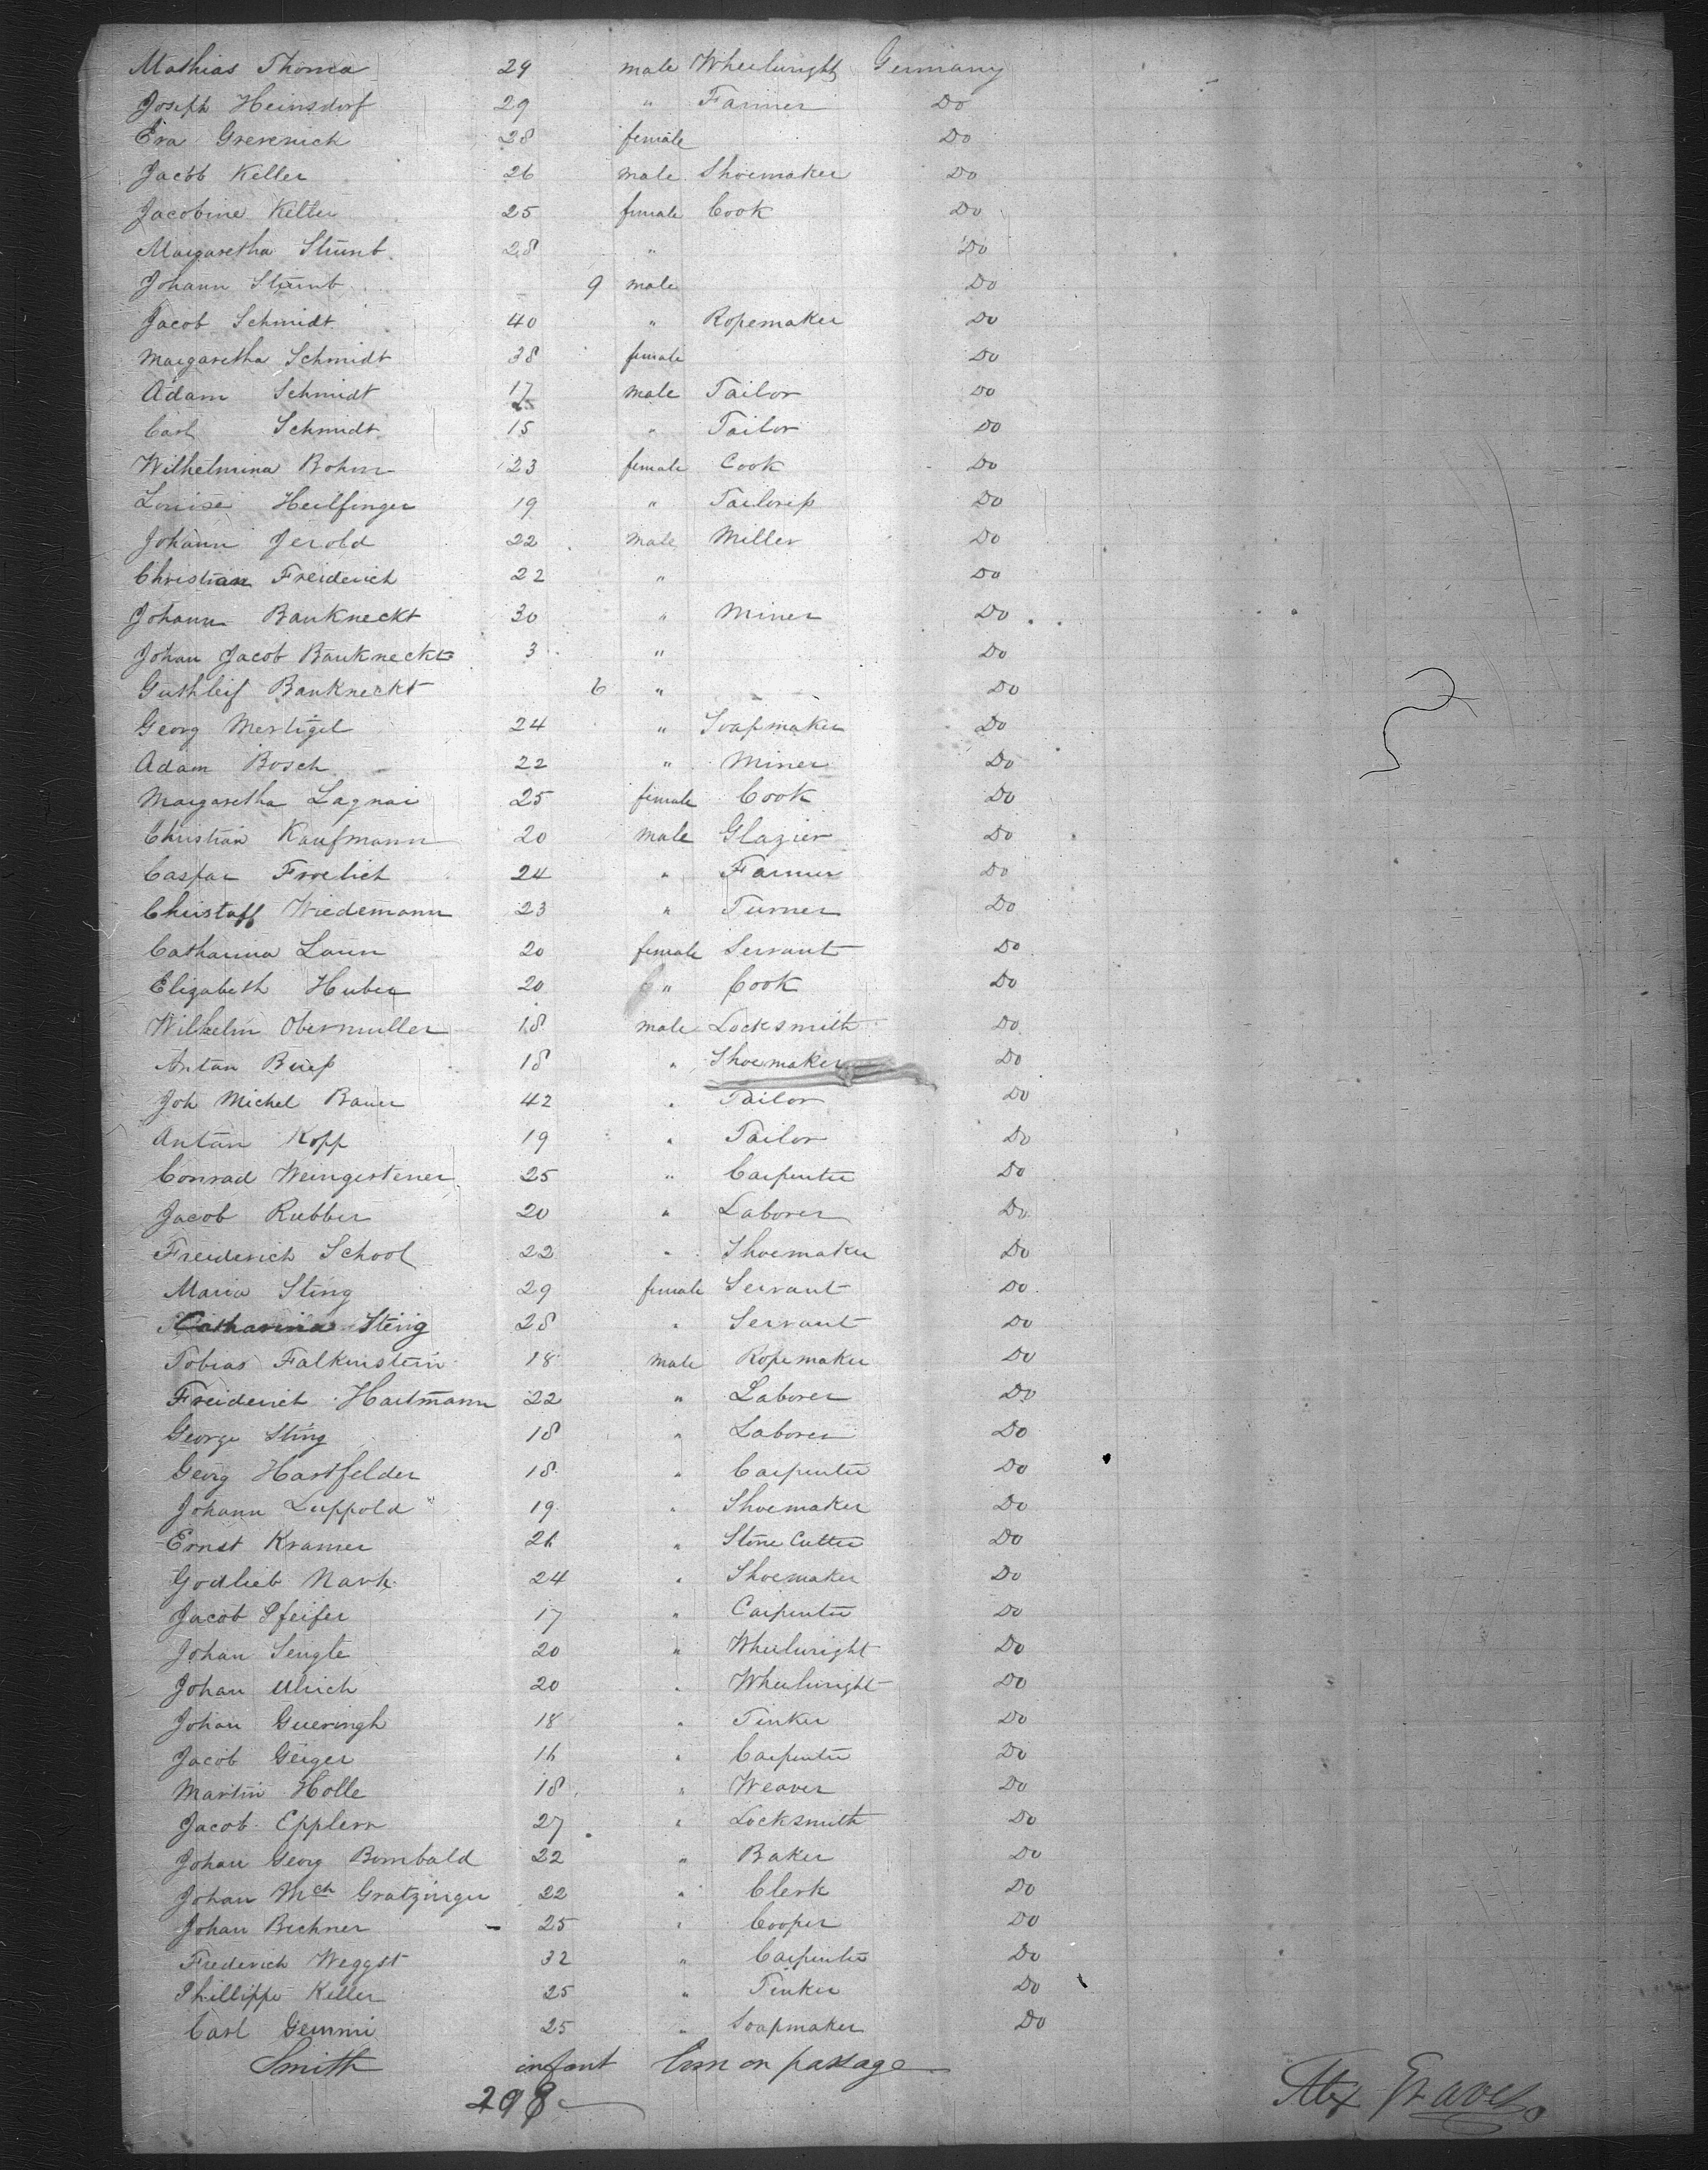 Mathias Thoma 29 male Wheelwright Germany
Joseph Heinsdorf 29 " Farmer Do
Eva Grevenich 28 female Do
Jacob Keller 26 male Shoemaker Do
Jacobine Keller 25 female Cook Do
Margaretha Stumb 28 " Do
Johann Stumb 9 male Do
Jacob Schmidt 40 " Ropemaker Do
Margaretha Schmidt 38 female Do
Adam Schmidt 17 male Tailor Do
Carl Schmidt 15 " Tailor Do
Wilhelmina Bohm 23 female Cook Do
Louise Heilfinger 19 " Tailoress Do
Johann Jerold 22 male Miller Do
Christian Freiderich 22 " Do
Johann Bankneckt 30 " Miner Do
Johan Jacob Bankneckt 3 " Do
Guthleif Bankneckt 6 " Do
Georg Mertigel 24 " Soapmaker Do
Adam Bosch 22 " Miner Do
Margaretha Lagnai 25 female Cook Do
Christian Kaufmann 20 male Glazier Do
Caspar Froelich 24 " Farmer Do
Christoff Wiedemann 23 " Turner Do
Catharina Laun 20 female Servant Do
Elizabeth Huber 20 " Cook Do
Wilhelm Obermuller 18 male Locksmith Do
Antan Buess 18 " Shoemaker Do
Joh Michel Bauer 42 " Tailor Do
Antan Kopp 19 " Tailor Do
Conrad Weingertener 25 " Carpenter Do
Jacob Rubber 20 " Laborer Do
Freiderich School 22 " Shoemaker Do
Maria Sting 29 female Servant Do
Catharina Sting 28 " Servant Do
Tobias Falkenstein 18 male Ropemaker Do
Freiderich Hartmann 22 " Laborer Do
George Sting 18 " Laborer Do
Georg Hartfelder 18 " Carpenter Do
Johann Luppold 19 " Shoemaker Do
Ernst Kramer 26 " Stone Cutter Do
Godlieb Nark 24 " Shoemaker Do
Jacob Pfeifer 17 " Carpenter Do
Johan Sengle 20 " Wheelwright Do
Johan Ulrich 20 " Wheelwright Do
Johan Gueringh 18 " Tinker Do
Jacob Geiger 16 " Carpenter Do
Martin Holle 18 " Weaver Do
Jacob Epplern 27 " Locksmith Do
Johan Georg Bombald 22 " Baker Do
Johan Mch Gratzinger 22 " Clerk Do
Johan Bechner 25 " Cooper Do
Frederich Weggst 32 " Carpenter Do
Phillippe Keller 25 " Tinker Do
Carl Gemmi 25 " Soapmaker Do
Smith infant born on passage
298
Alex Graves